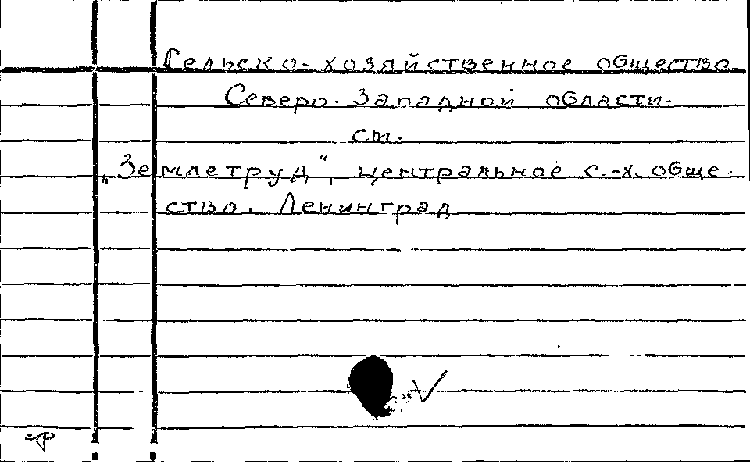 Сельско-хозяйственное общество
Северо-Западной области
см.
„Землетруд", центральное с.-х. обще-
ство. Ленинград